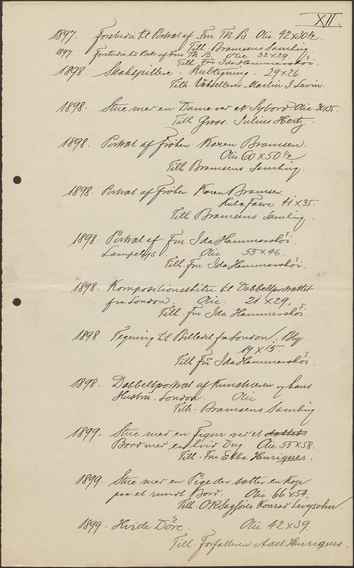 XII
1897. Forstudie til Portræt af Frk Th. B. Olie 42x30½
Till. Bramsens Samling
1897 Forstudie til Portræt af Frk Th. B. Olie 32x29
Till Fr Ida Hammershöi
1898 Skakspillere. Radtegning. 29x26
Till. Martin J Levin
1898. Stue med en Dame ved et Sybord Olie
Till Gross. Julius Hertz
1898. Portræt af Frøken Karen Bramsen
Olie 60x50½
Till Bramsens Samling
1898. Portræt af Frøken Karen Bramsen
Farve 41x35
Till Bramsens Samling.
1898 Portræt af Fru Ida Hammershöi
Olie 55x46.
Till Fru Ida Hammershöi.
1898. Kompositionsskitse til Dobbeltportrættet
fra London. Olie. 21x29.
Till Fru Ida Hammershöi
1898 Tegning til Billedet fra London. Bly
19x15
Till Fru Ida Hammershöi.
1898. Dobbeltportræt af Kunstneren og hans
Hustru. London Olie
Till. Bramsens Samling
1899. Stue med en Figur ved et
Bord med en hvid Dug Olie 55x58.
Till. Fru Ebba Henriques.
1899. Stue med en Pige der sætter en Kop
paa et rundt Bord. Olie 66x54.
Till Konrad Levysohn
1899. Hvide Döre. Olie 42x39.
Till Forfatteren Axel Henriques.